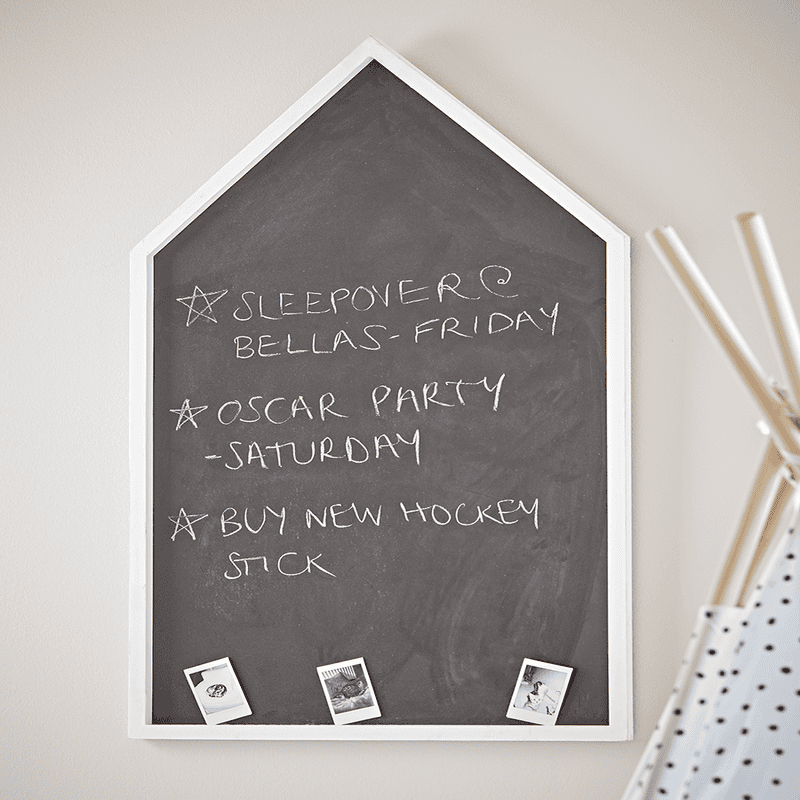 ☆ SLEEPOVER @
BELLAS-FRIDAY
☆ OSCAR PARTY
-SATURDAY
☆ BUY NEW HOCKEY
STICK